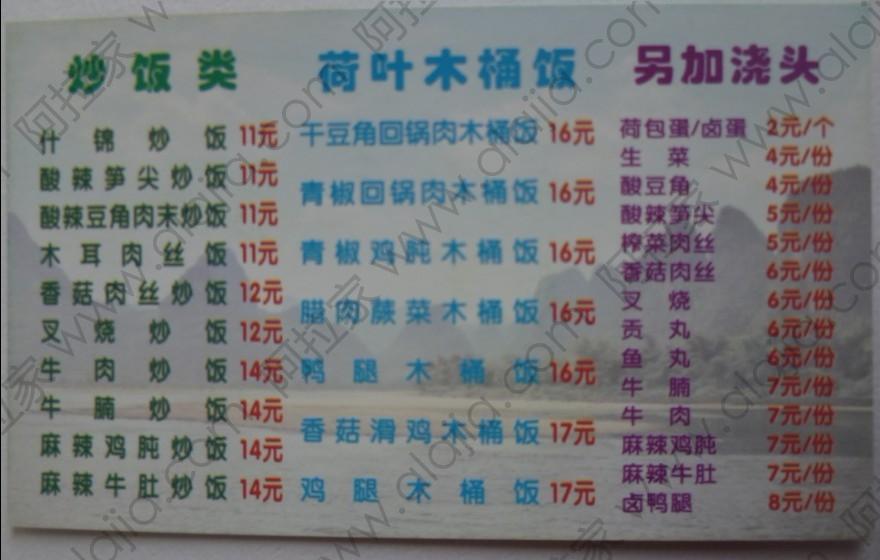 炒饭类
什锦炒饭 11元
酸辣笋尖炒饭 11元
酸辣豆角肉末炒饭 11元
木耳肉丝饭 11元
香菇肉丝炒饭 12元
叉烧炒饭 12元
牛肉炒饭 14元
牛腩炒饭 14元
麻辣鸡肫炒饭 14元
麻辣牛肚炒饭 14元
荷叶木桶饭
干豆角回锅肉木桶饭 16元
青椒回锅肉木桶饭 16元
青椒鸡肫木桶饭 16元
腊肉蕨菜木桶饭 16元
鸭腿木桶饭 16元
香菇滑鸡木桶饭 17元
鸡腿木桶饭 17元
另加浇头
荷包蛋/卤蛋 2元/个
生菜 4元/份
酸豆角 4元/份
酸辣笋尖 5元/份
榨菜肉丝 5元/份
香菇肉丝 6元/份
叉烧 6元/份
贡丸 6元/份
鱼丸 6元/份
牛腩 7元/份
牛肉 7元/份
麻辣鸡肫 7元/份
麻辣牛肚 7元/份
卤鸭腿 8元/份
阿拉家 www.alajia.com